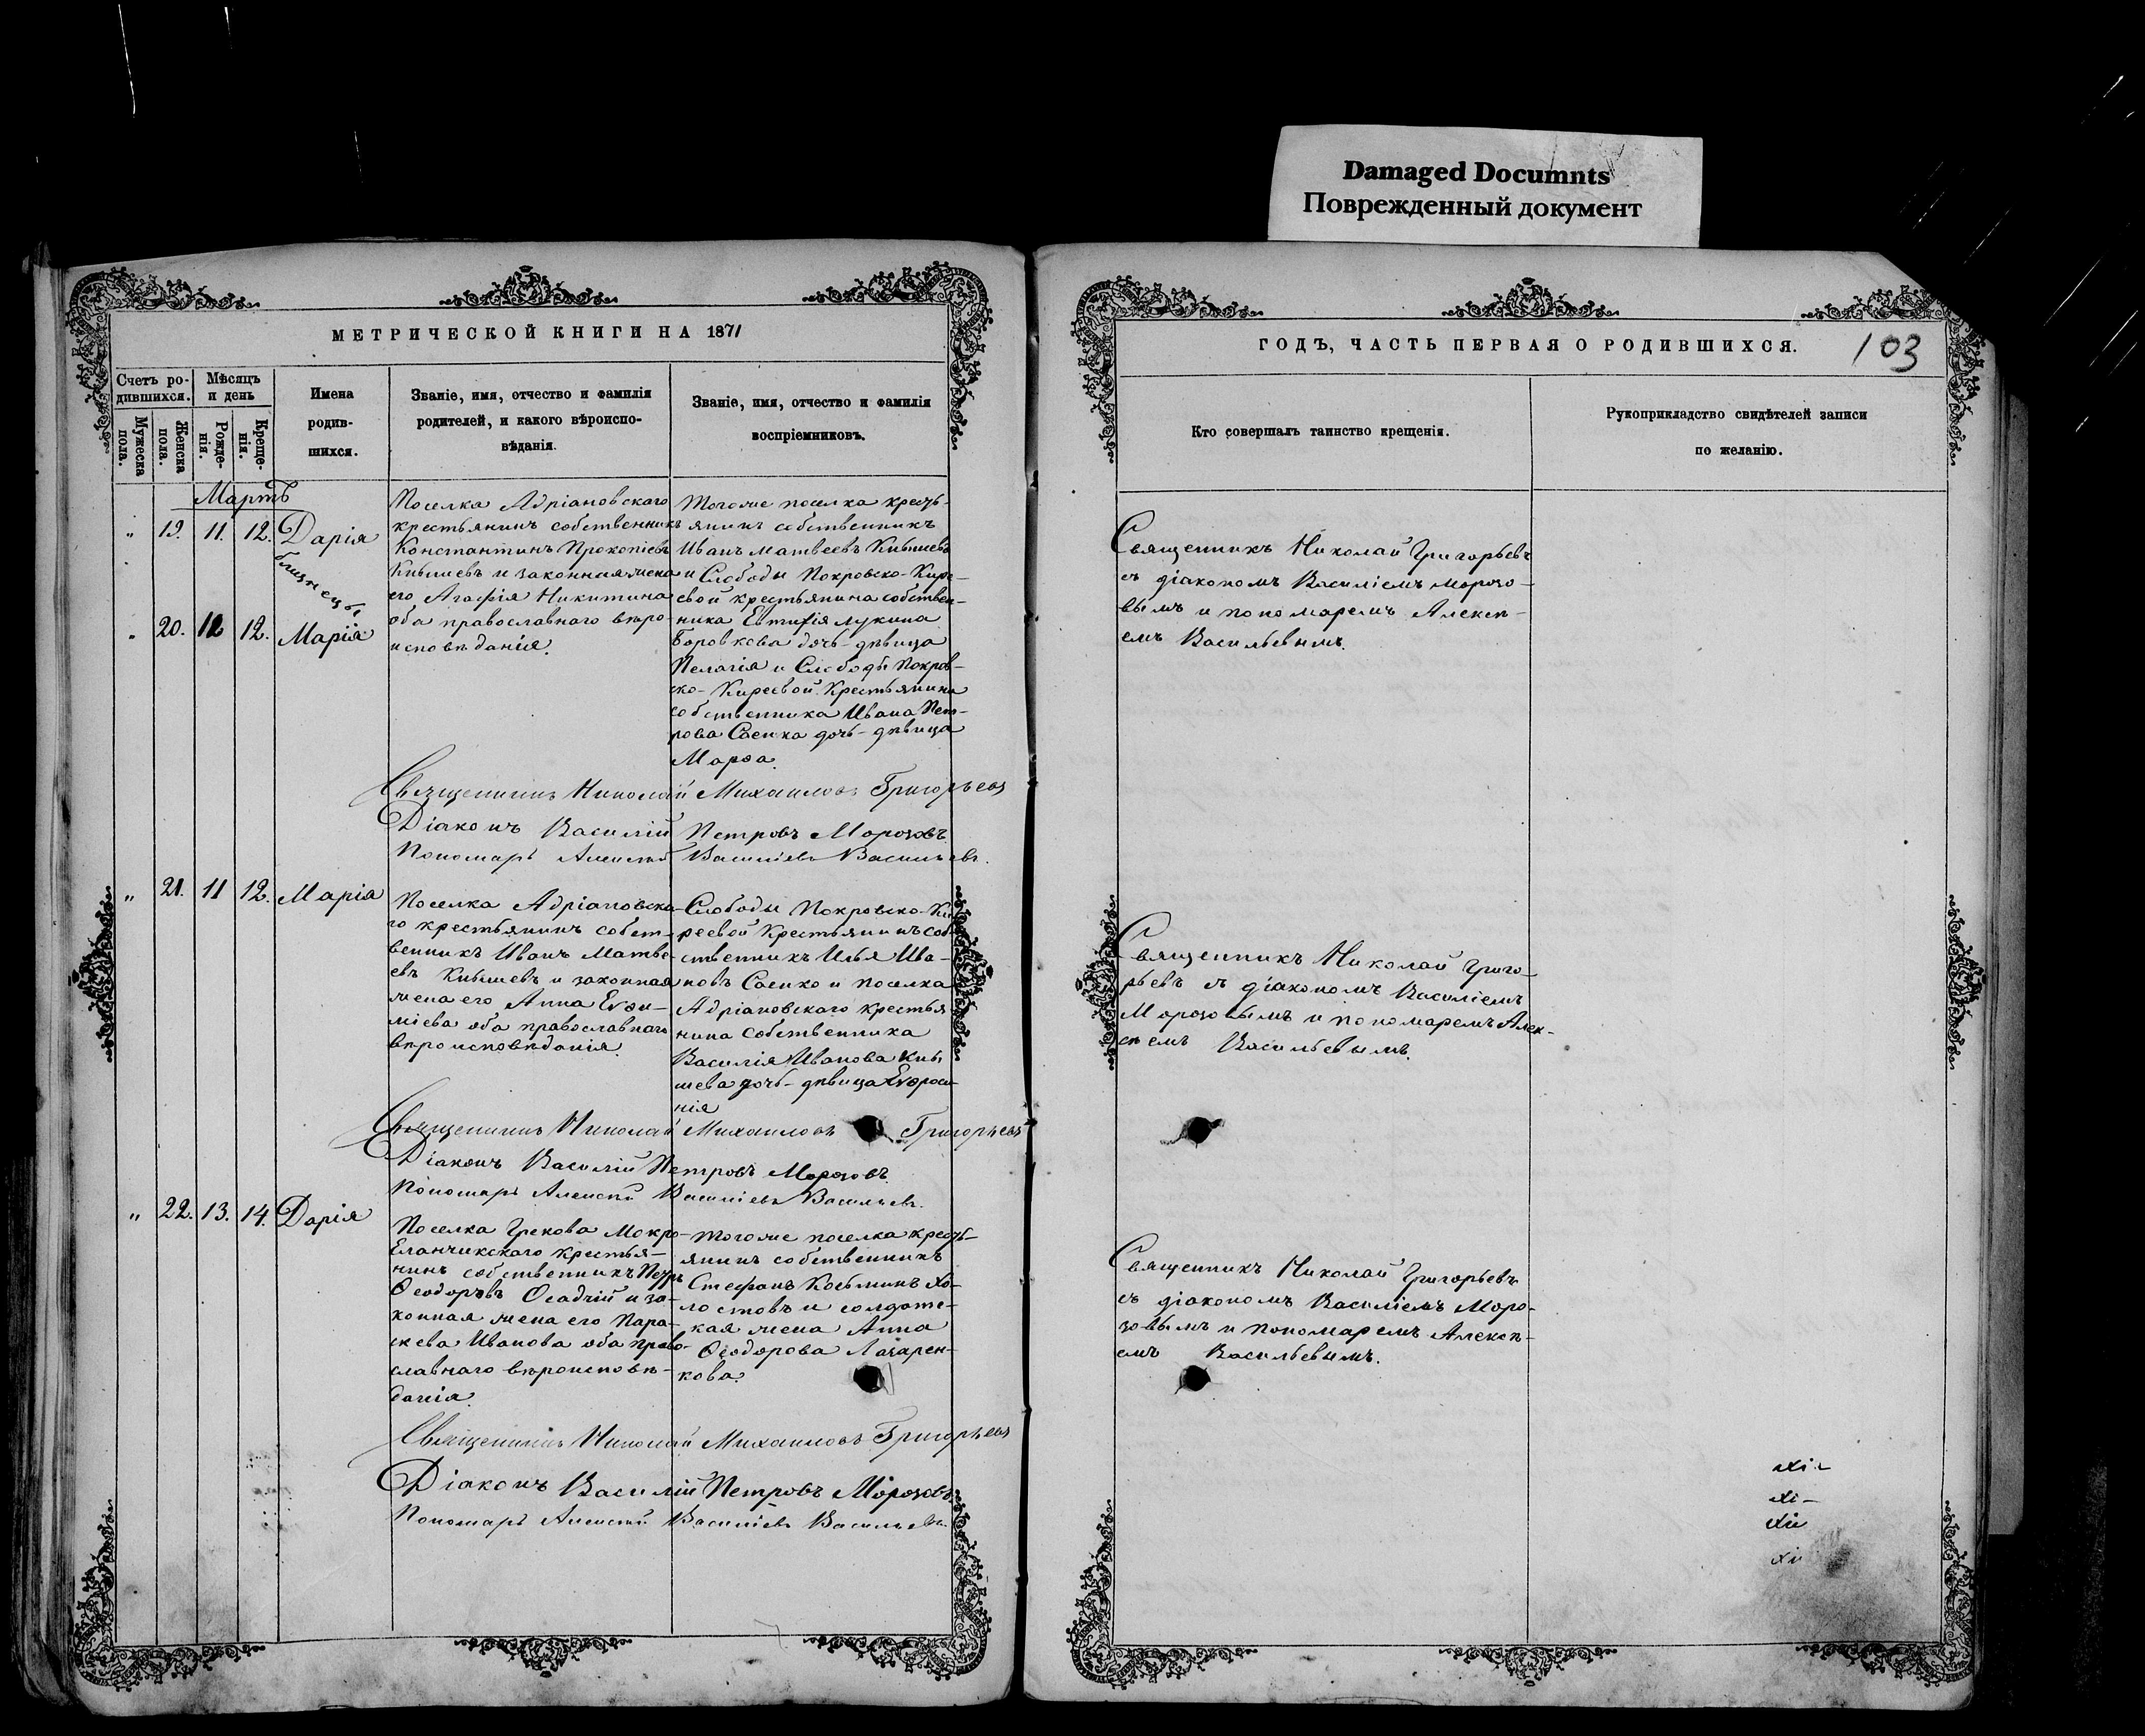 Damaged Documnts
Поврежденный документ
МЕТРИЧЕСКОЙ КНИГИ НА 1871
Счетъ ро-
дившихся.
Мужеска
пола.
Женска
пола.
Мѣсяцъ
и день
Рожде-
нія.
Креще-
нія.
Имена
родив-
шихся.
Званіе, имя, отчество и фамилія
родителей, и какого вѣроиспо-
вѣданія.
Званіе, имя, отчество и фамилія
воспріемниковъ.
Мартъ
" 19. 11. 12. Дарія
близнецы
" 20. 12 12. Марія
Поселка Адріановскаго
крестьянинъ собственникъ
Константинъ Прокопіевъ
Кнышевъ и законная жена
его Агафія Никитина
оба православнаго вѣро-
исповѣданія.
Тогоже поселка кресть-
янинъ собственникъ
Иванъ Матвеевъ Кнышевъ
и Слободы Покровско-Кире-
евой крестьянина собствен-
ника Лукина
Боровкова дочь-дѣвица
Пелагія и Слободы Покров-
ско-Киреевой Крестьянина
собственника Ивана Пет-
рова Саенка дочь-дѣвица
Марѳа.
Священникъ Николай Михаиловъ Григорьевъ
Діаконъ Василій Петровъ Морозовъ.
Пономарь Алексѣй Василіевъ Васильевъ.
" 21. 11 12. Марія
Поселка Адріановска-
го крестьянинъ собст-
венникъ Иванъ Матве-
евъ Кнышевъ и законная
жена его Анна Евѳи-
міева оба православнаго
вѣроисповѣданія.
Слободы Покровско-Ки-
реевой Крестьянинъ соб-
ственникъ Илья Ива-
новъ Саенко и поселка
Адріановскаго крестья
нина собственника
Василія Иванова Кны
шева дочь-дѣвица Евѳроси-
нія
Священникъ Николай Михаиловъ Григорьевъ
Діаконъ Василій Петровъ Морозовъ.
Пономарь Алексѣй Василіевъ Васильевъ.
" 22. 13. 14. Дарія
Поселка Грекова Мокро-
Еланчикскаго крестья-
нинъ собственникъ Петръ
Ѳеодоровъ Осадчій и за-
конная жена его Пара-
скева Иванова оба право-
славнаго вѣроисповѣ-
данія.
Тогоже поселка кресть-
янинъ собственникъ
Стефанъ Косьминъ Хо-
лостовъ и солдатс-
кая жена Анна
Ѳеодорова Лазарен-
кова.
Священникъ Николай Михаиловъ Григорьевъ
Діаконъ Василій Петровъ Морозовъ.
Пономарь Алексѣй Василіевъ Васильевъ.
ГОДЪ, ЧАСТЬ ПЕРВАЯ О РОДИВШИХСЯ.
103
Кто совершалъ таинство крещенія.
Рукоприкладство свидѣтелей записи
по желанію.
Священникъ Николай Григорьевъ
съ діакономъ Василіемъ Морозо-
вымъ и пономаремъ Алексѣ-
емъ Васильевымъ.
Священникъ Николай Григо-
рьевъ съ діакономъ Василіемъ
Морозовымъ и пономаремъ Алек-
сѣемъ Васильевымъ.
Священникъ Николай Григорьевъ
съ діакономъ Василіемъ Моро-
зовымъ и пономаремъ Алексѣ-
емъ Васильевымъ.